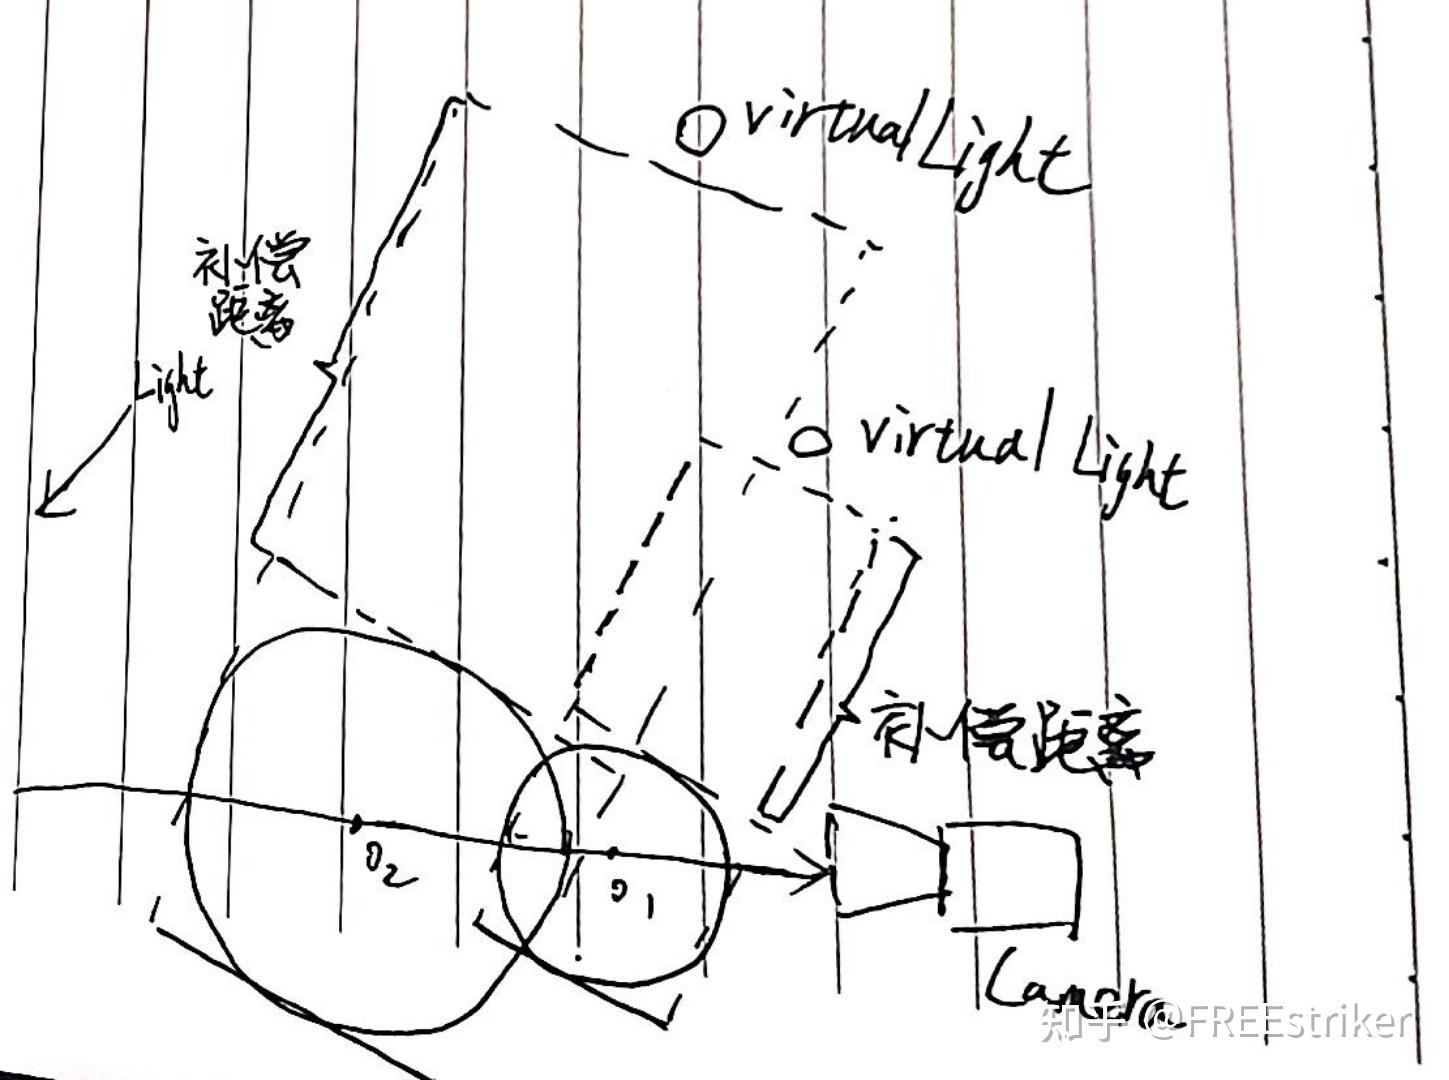 virtualLight
补偿
距离
Light
virtual Light
补偿距离
O2
O1
Camera
知乎 @FREEstriker